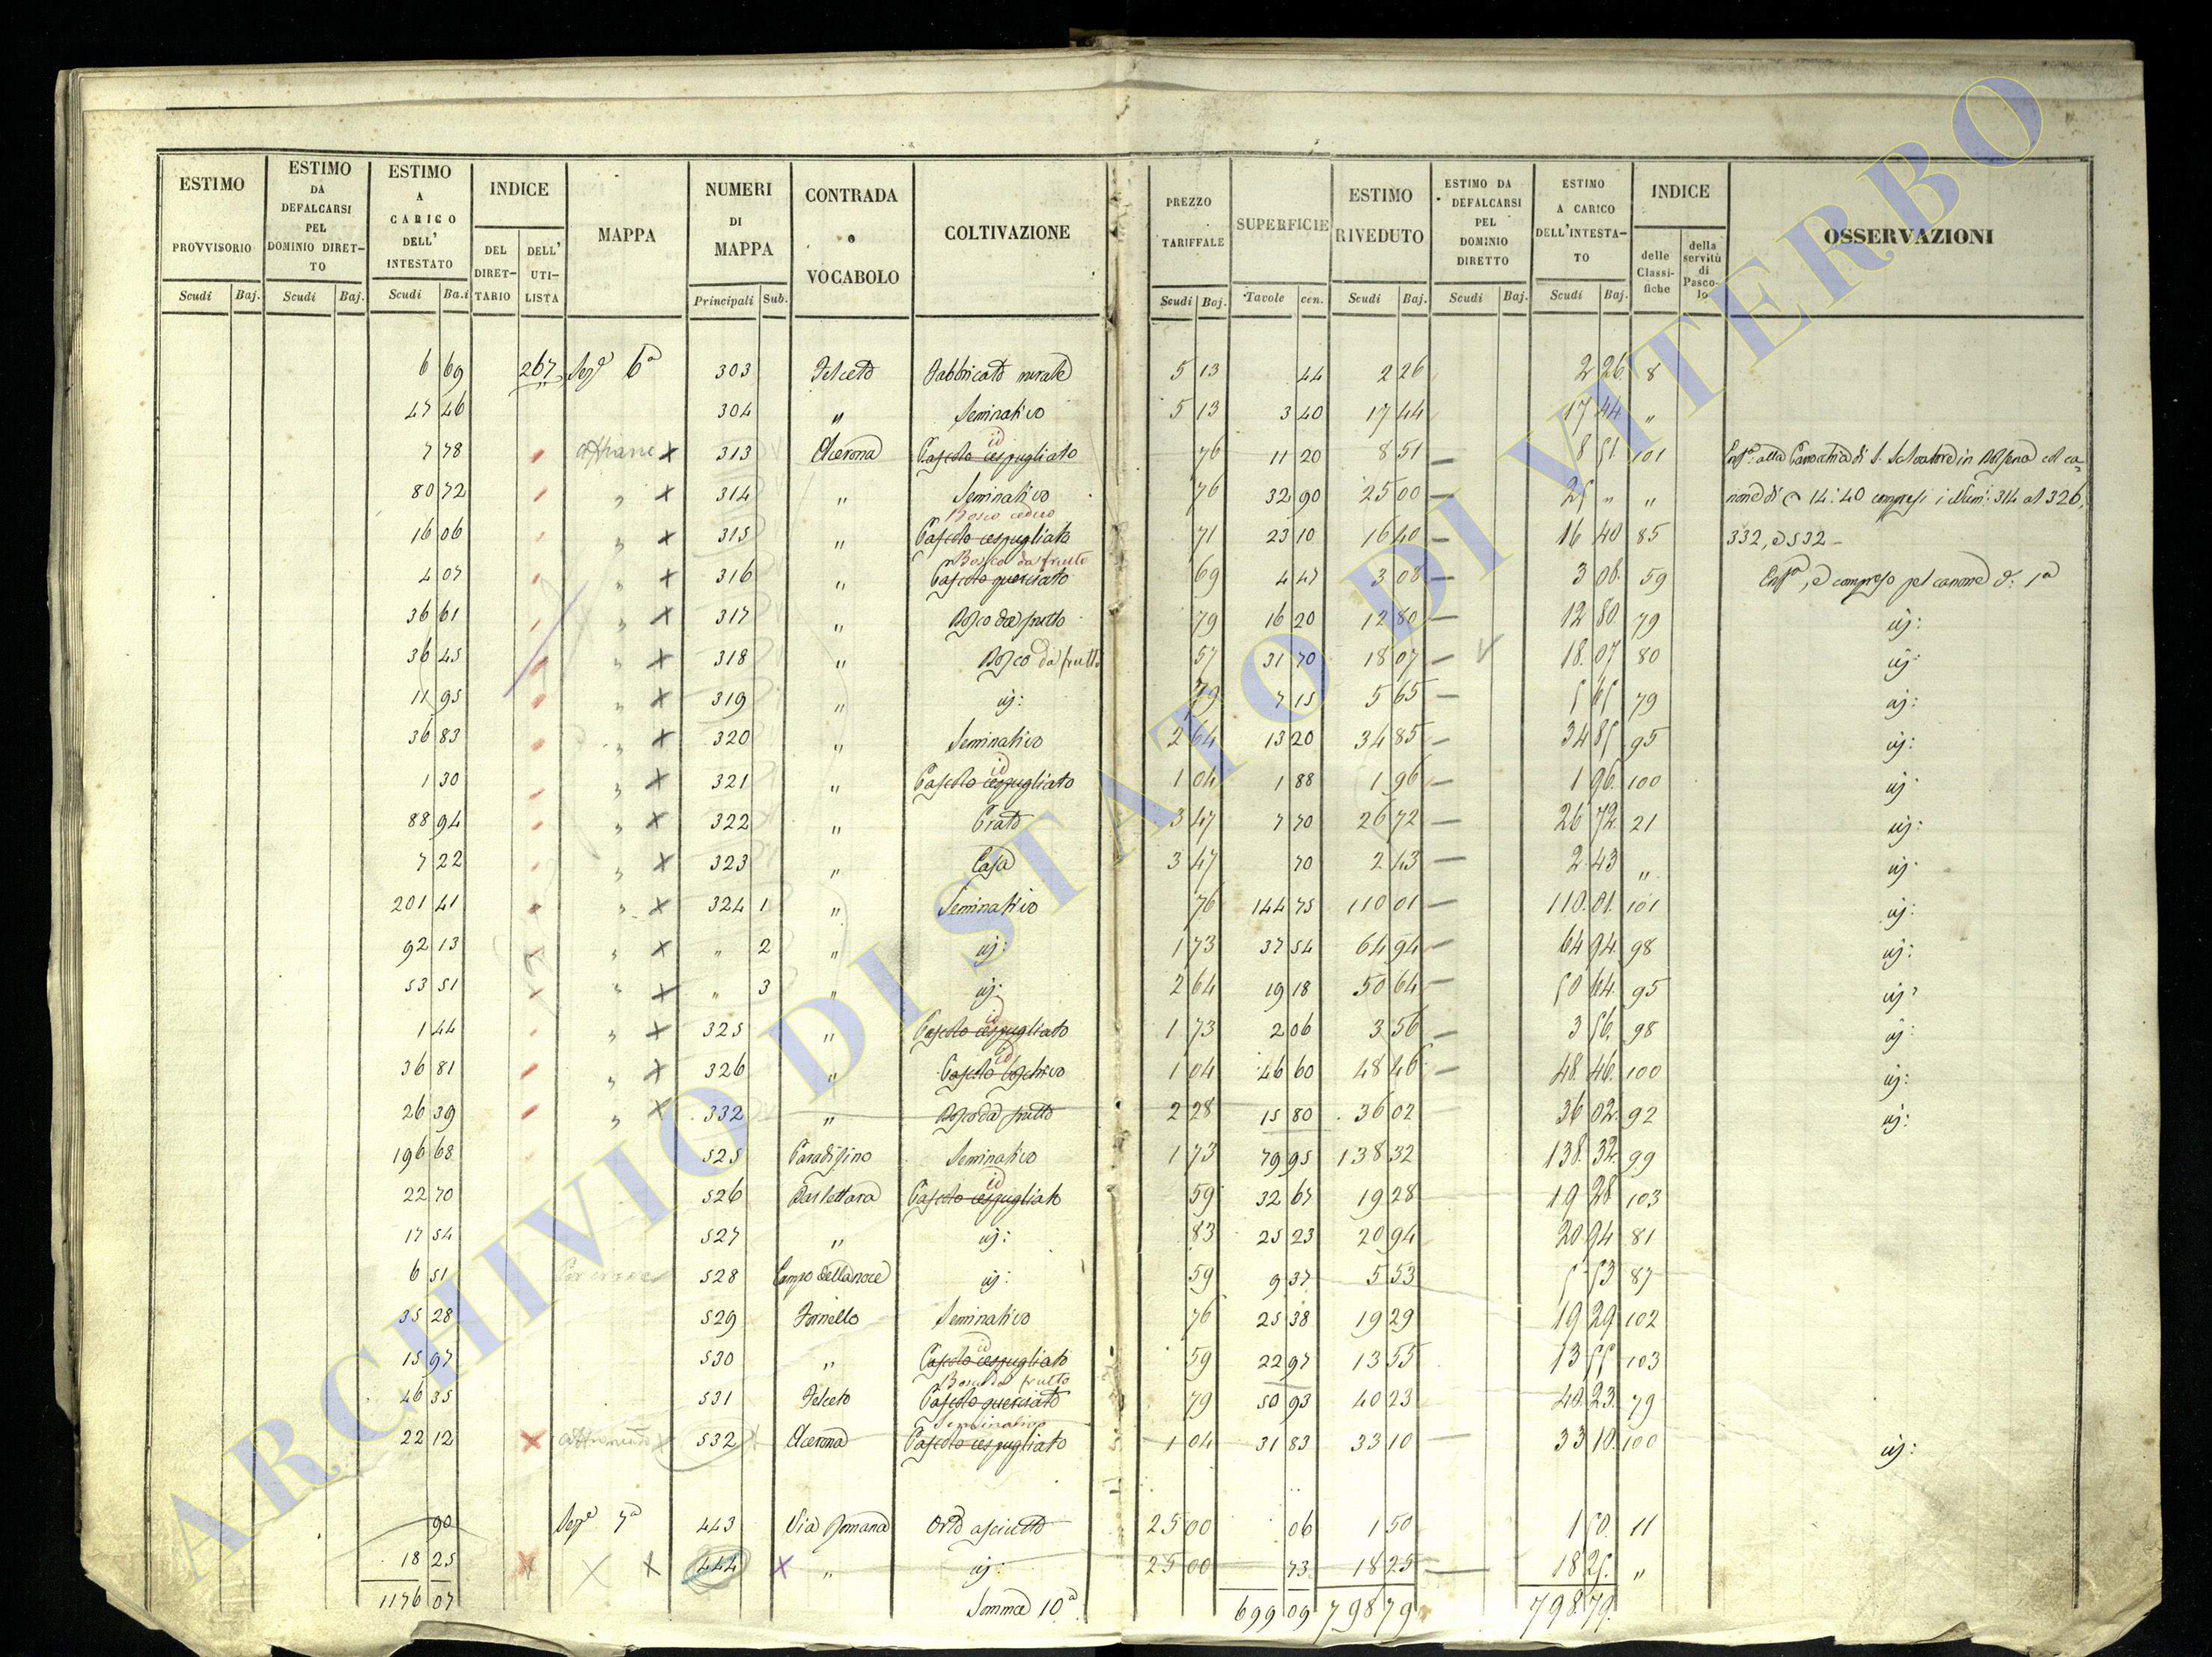 ESTIMO PROVVISORIO Scudi Baj.
ESTIMO DA DEFALCARSI PEL DOMINIO DIRETTO Scudi Baj.
ESTIMO A CARICO DELL' INTESTATO Scudi Ba.i
INDICE DEL DIRETTARIO DELL' UTILISTA
MAPPA
NUMERI DI MAPPA Principali Sub.
CONTRADA o VOCABOLO
COLTIVAZIONE
PREZZO TARIFFALE Scudi Baj.
SUPERFICIE Tavole cen.
ESTIMO RIVEDUTO Scudi Baj.
ESTIMO DA DEFALCARSI PEL DOMINIO DIRETTO Scudi Baj.
ESTIMO A CARICO DELL'INTESTATO Scudi Baj.
INDICE delle Classifiche della servitù di Pascolo
OSSERVAZIONI
6 69 267 Sez.e 6a 303 Felceto Fabbricato rurale 5 13 44 2 26 2 26 8
47 46 304 " Seminativo 5 13 3 40 17 44 17 44 "
7 78 x 313 Acerona id Pascolo cespugliato 76 11 20 8 51 8 51 101 di S. Salvatore in Bolsena col ca=
80 72 " x 314 " Seminativo 76 32 90 25 00 25 " " none di 14:40 compresi i Num. 314 al 326,
16 06 " x 315 " Bosco ceduo Pascolo cespugliato 71 23 10 16 40 16 40 85 332, e 532
4 07 " x 316 " Bosco da frutto Pascolo querciato 69 4 47 3 08 3 08 59 e compreso pel canone d: 1a
36 61 " x 317 " Bosco da frutto 79 16 20 12 80 12 80 79 id:
36 45 " x 318 " Bosco da frutto 57 31 70 18 07 18 07 80 id:
11 95 " x 319 " id: 79 7 15 5 65 5 65 79 id:
36 83 " x 320 " Seminativo 2 64 13 20 34 85 34 85 95 id:
1 30 " x 321 " id Pascolo cespugliato 1 04 1 88 1 96 1 96 100 id:
88 94 " x 322 " Prato 3 47 7 70 26 72 26 72 21 id:
7 22 " x 323 " Casa 3 47 70 2 43 2 43 " id:
201 41 " x 324 1 " Seminativo 76 144 75 110 01 110 01 101 id:
92 13 " x " 2 " id: 1 73 37 54 64 94 64 94 98 id:
53 51 " x " 3 " id: 2 64 19 18 50 64 50 64 95 id:
1 44 " x 325 " id Pascolo cespugliato 1 73 2 06 3 56 3 56 98 id:
36 81 " x 326 " id Pascolo boschivo 1 04 46 60 48 46 48 46 100 id:
26 39 " x 332 " Bosco da frutto 2 28 15 80 36 02 36 02 92 id:
196 68 525 Paradisino Seminativo 1 73 79 95 138 32 138 32 99
22 70 526 id Pascolo cespugliato 59 32 67 19 28 19 28 103
17 54 527 " id: 83 25 23 20 94 20 94 81
6 51 528 Campo della noce id: 59 9 37 5 53 5 53 87
35 28 529 Fornello Seminativo 76 25 38 19 29 19 29 102
15 97 530 " id Pascolo cespugliato 59 22 97 13 55 13 55 103
46 35 531 Felceto Bosco da frutto Pascolo querciato 79 50 93 40 23 40 23 79
22 12 x 532 Acerona Seminativo Pascolo cespugliato 1 04 31 83 33 10 33 10 100 id:
90 Sez.e 7a 443 Via Romana Orto asciutto 25 00 06 1 50 1 50 11
18 25 x x x 444 x " id: 25 00 73 18 25 18 25 "
1176 07 Somma 10a 699 09 798 79 798 79
ARCHIVIO DI STATO DI VITERBO